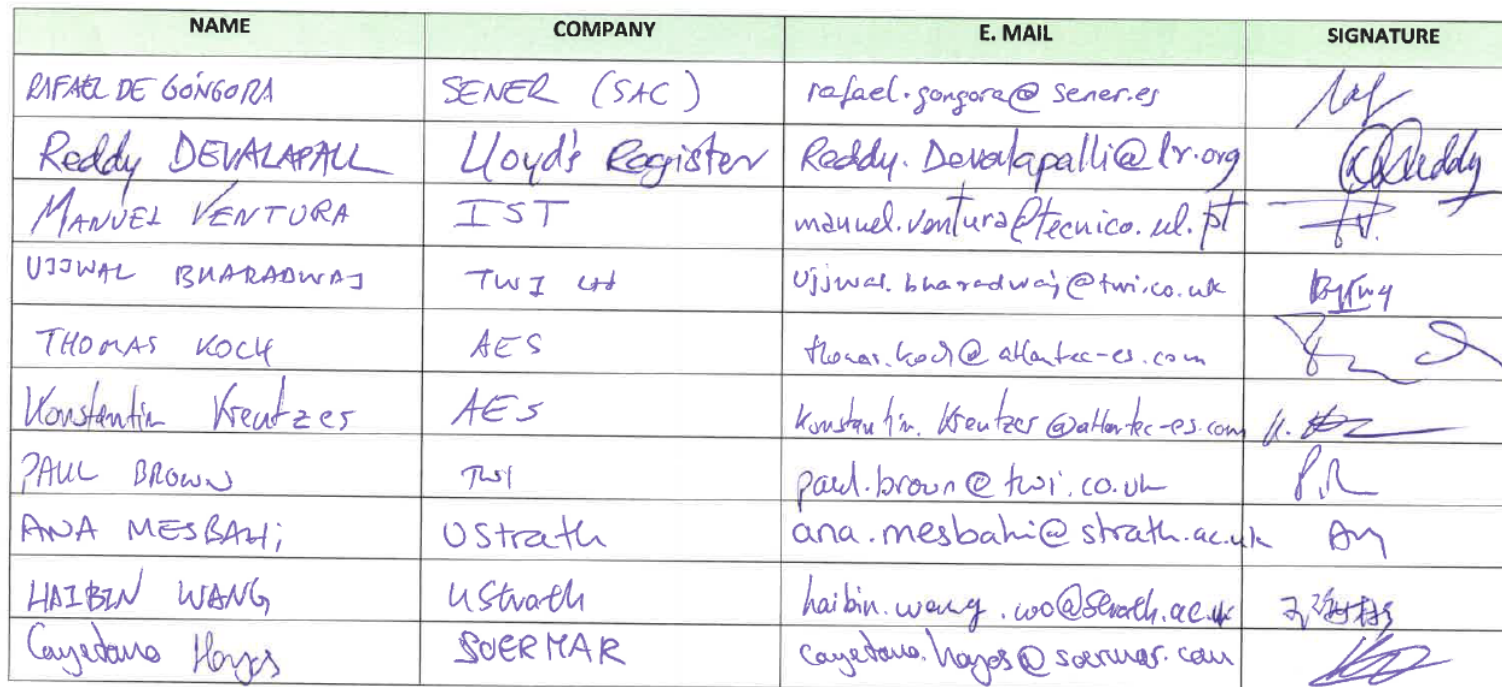 NAME COMPANY E. MAIL SIGNATURE
RAFAEL DE GÓNGORA SENER (SAC) rafael.gongora@sener.es
Reddy DEVALAPALL Lloyd's Register Reddy.Devalapalli@lr.org Reddy
MANUEL VENTURA IST manuel.ventura@tecnico.ul.pt
UJJWAL BHARADWAJ TWI Ltd ujjwal.bharadwaj@twi.co.uk
THOMAS KOCH AES thomas.koch@atlantec-es.com
Konstantin Kreutzer AES Konstantin.Kreutzer@atlantec-es.com
PAUL BROWN TWI paul.brown@twi.co.uk
ANA MESBAHi UStrath ana.mesbahi@strath.ac.uk AM
HAIBIN WANG UStrath haibin.wang.100@strath.ac.uk 王海彬
Cayetano Hoyos SOERMAR cayetano.hoyos@soermar.com